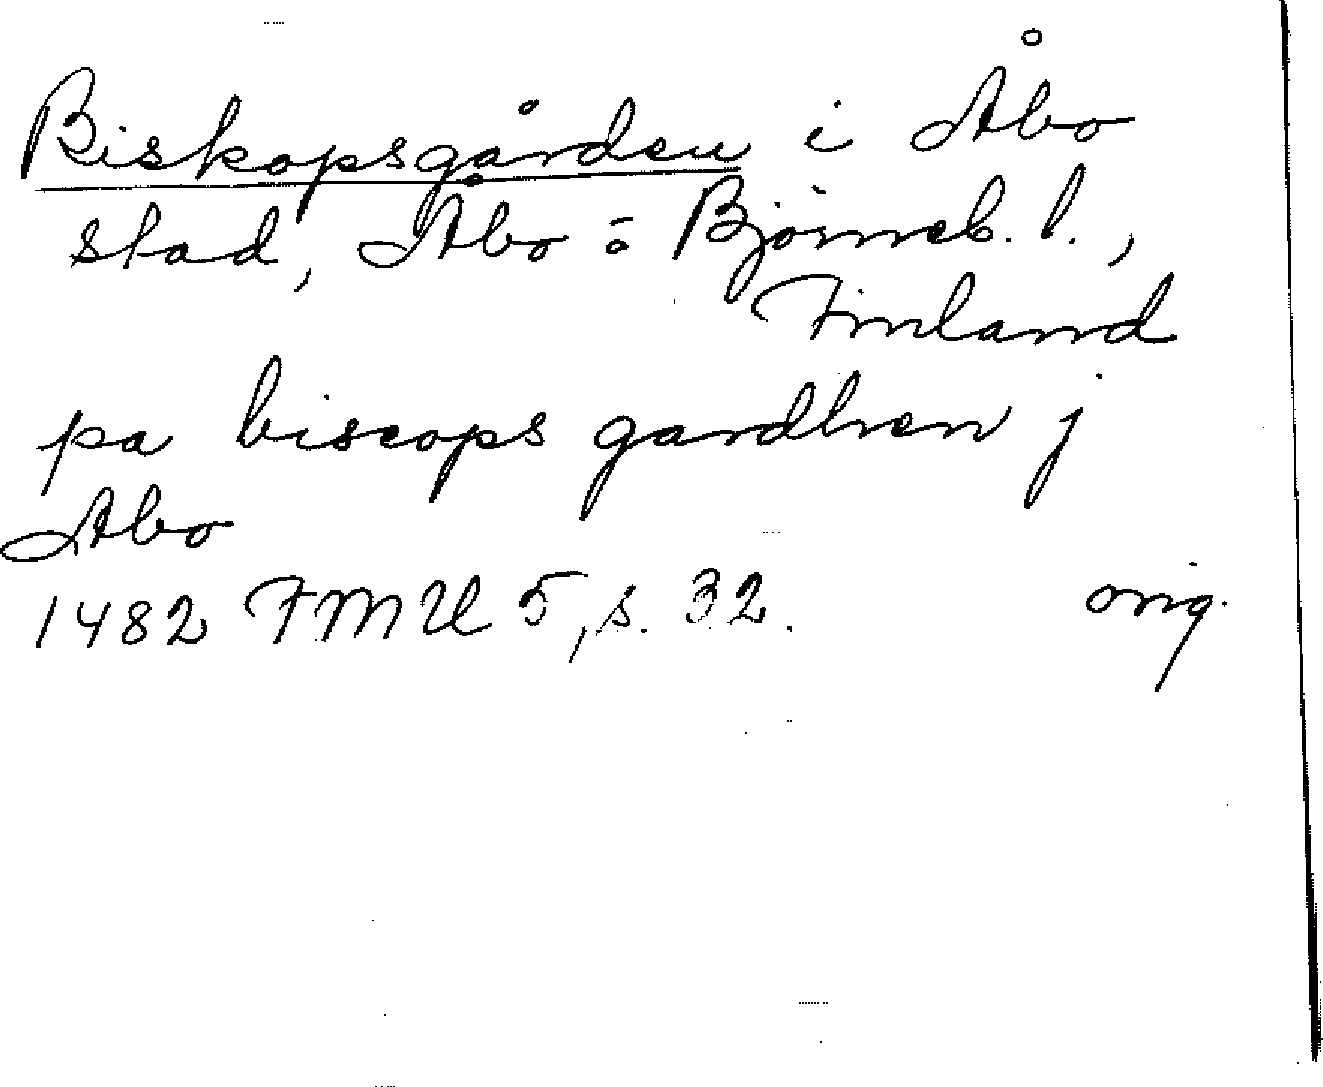 Biskopsgården i Åbo
stad, Åbo o Björneb. l.,
Finland
pa biscops gardhen j
Abo
1482 FMU 5, s. 32. orig.